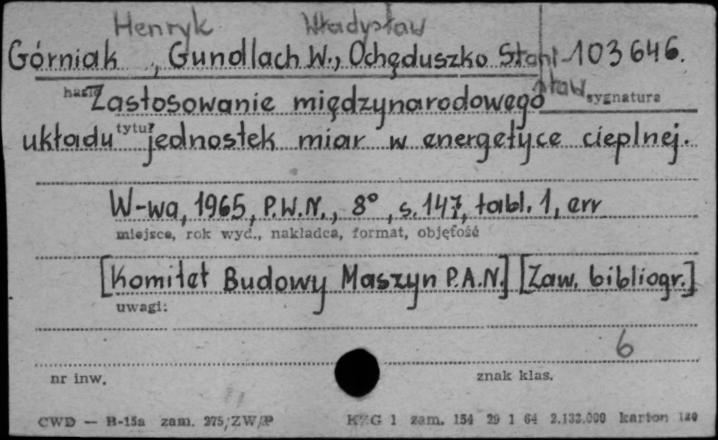 Henryk Władysław
Górniak, Gundlach W., Ochęduszko Stani- 103646.
sław
hasło sygnatura
Zastosowanie międzynarodowego
układu jednostek miar w energetyce cieplnej.
tytuł
W-wa, 1965, P.W.N., 8°, s. 147, tabl. 1, err
miejsce, rok wyd., nakładca, format, objętość
[Komitet Budowy Maszyn P.A.N.] [Zaw. bibliogr.]
uwagi:
6
nr inw. znak klas.
CWD — B-15a zam. 275/ZW/P KZG 1 zam. 154 29 1 64 2.132.000 karton